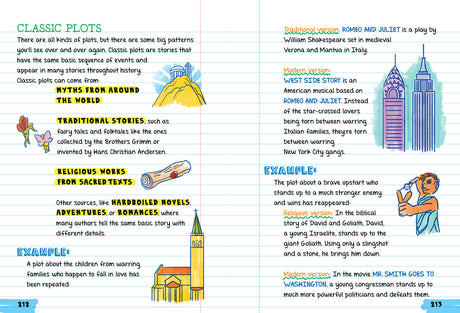 CLASSIC PLOTS
There are all kinds of plots, but there are some big patterns
you'll see over and over again. Classic plots are stories that
have the same basic sequence of events and
appear in many stories throughout history.
Classic plots can come from:
MYTHS FROM AROUND
THE WORLD
TRADITIONAL STORIES, such as
fairy tales and folktales like the ones
collected by the Brothers Grimm or
invented by Hans Christian Andersen.
RELIGIOUS WORKS
FROM SACRED TEXTS
Other sources, like HARDBOILED NOVELS,
ADVENTURES, or ROMANCES, where
many authors tell the same basic story with
different details.
EXAMPLE:
A plot about the children from warring
families who happen to fall in love has
been repeated:
212
Traditional version: ROMEO AND JULIET is a play by
William Shakespeare set in medieval
Verona and Mantua in Italy.
Modern version:
WEST SIDE STORY is an
American musical based on
ROMEO AND JULIET. Instead
of the star-crossed lovers
being torn between warring
Italian families, they're torn
between warring
New York City gangs.
EXAMPLE:
The plot about a brave upstart who
stands up to a much stronger enemy
and wins has reappeared:
Religious version: In the biblical
story of David and Goliath, David,
a young Israelite, stands up to the
giant Goliath. Using only a slingshot
and a stone, he brings him down.
Modern version: In the movie MR. SMITH GOES TO
WASHINGTON, a young congressman stands up to
much more powerful politicians and defeats them.
213